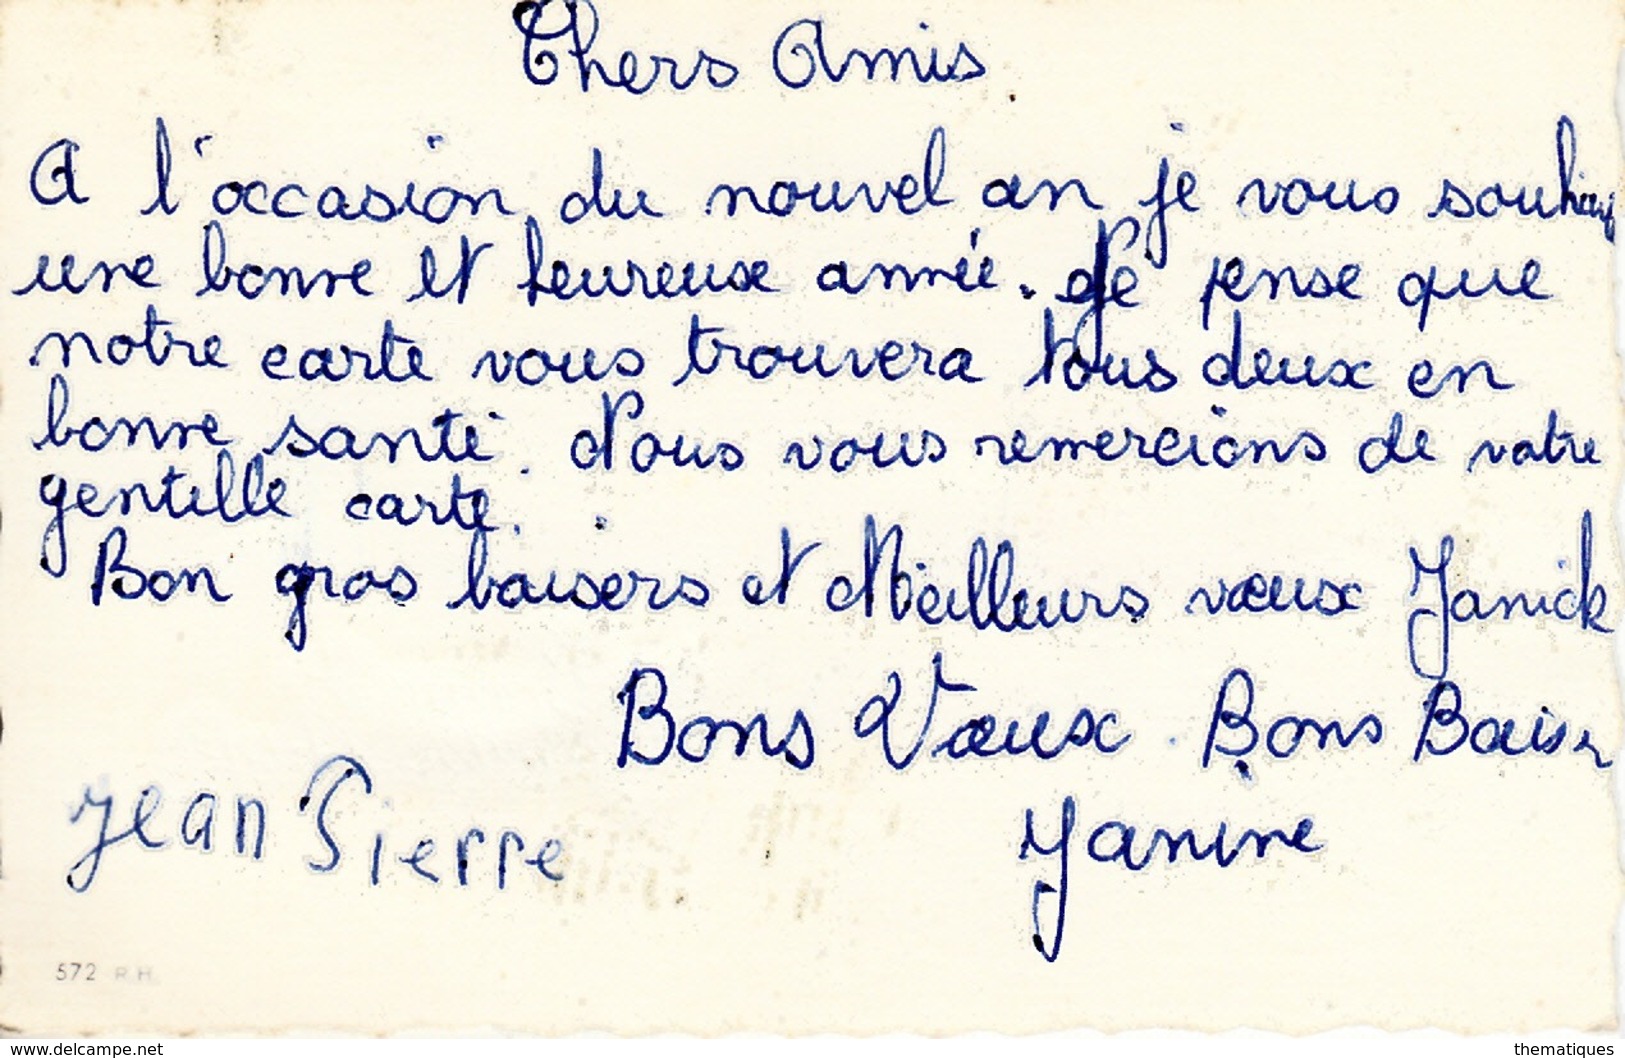 Chers Amis
A l'occasion du nouvel an je vous
une bonne et heureuse année. Je pense que
notre carte vous trouvera tous deux en
bonne santé. Nous vous remercions de votre
gentille carte.
Bon gros baisers et Meilleurs vœux Janick
Bons Vœux. Bons Baiser
Jean Pierre
Janine
572 R.H.
www.delcampe.net
thematiques